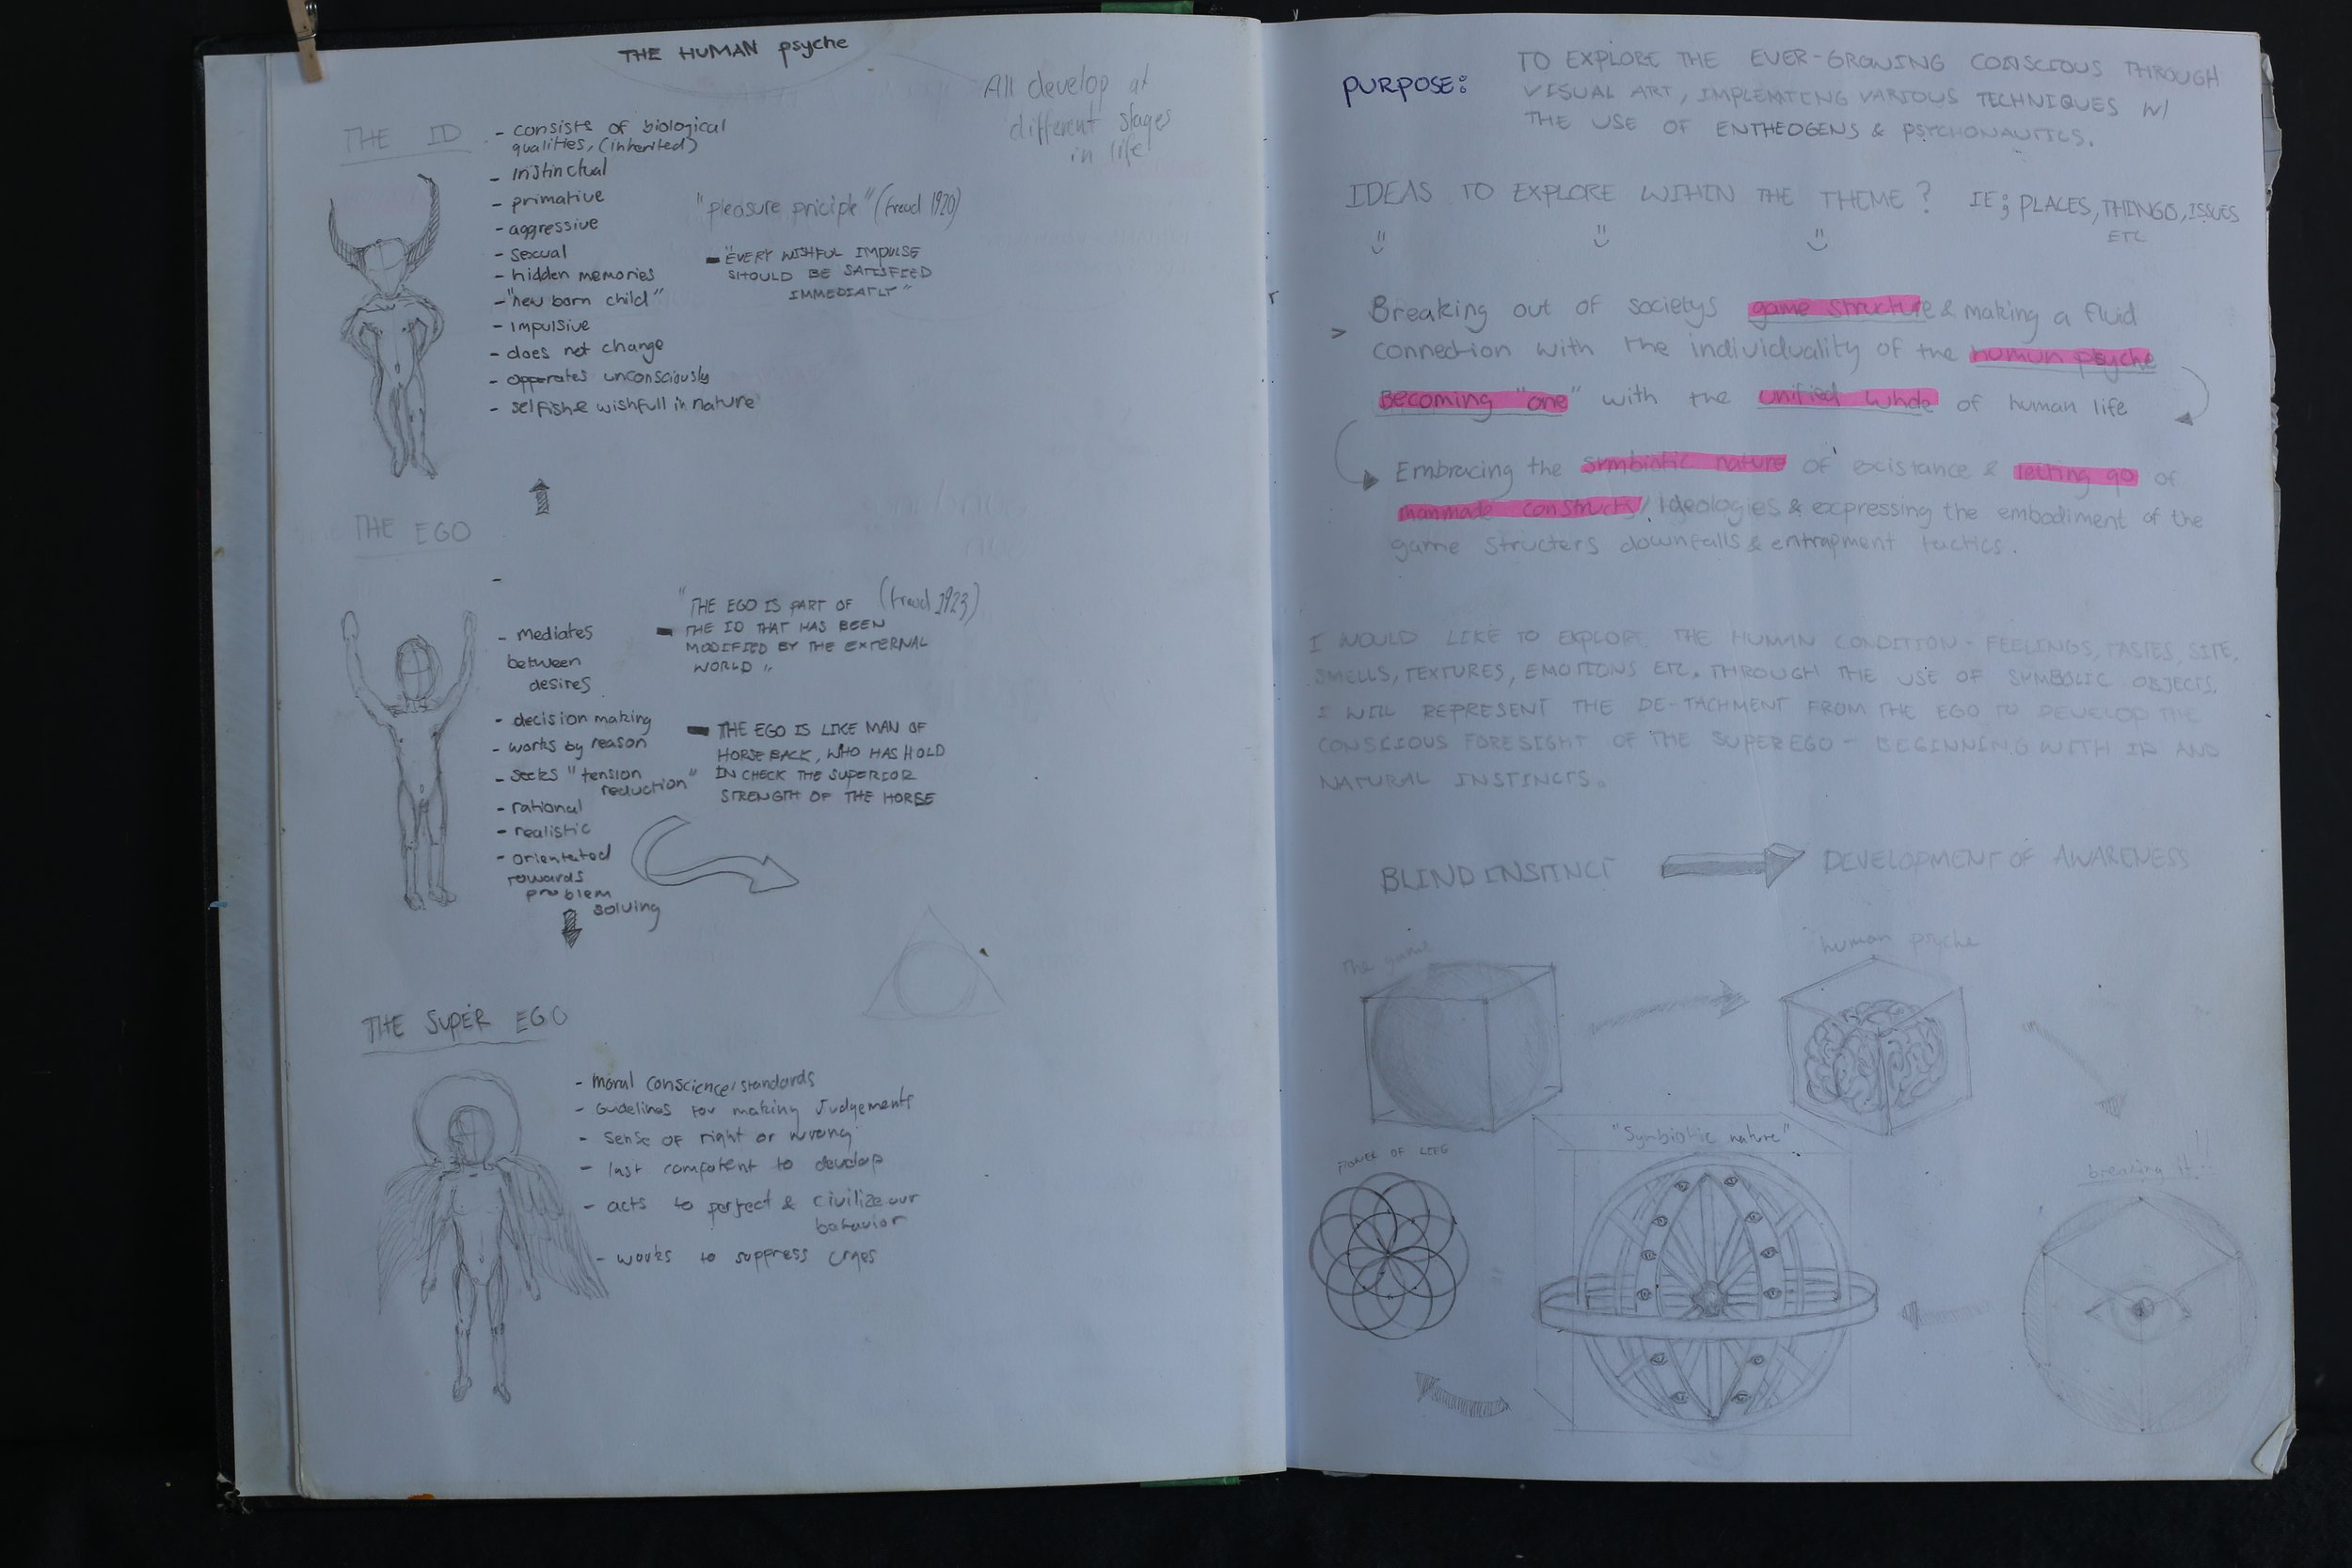 THE HUMAN psyche
All develop at
different stages
in life
THE ID
- consists of biological
qualities, (inherited)
- instinctual
- primative
- aggressive
- sexual
- hidden memories
- "new born child"
- impulsive
- does not change
- opperates unconsciously
- selfish & wishfull in nature
"pleasure priciple" (freud 1920)
- "EVERY WISHFUL IMPULSE
SHOULD BE SATISFIED
IMMEDIATLY"
THE EGO
-
- mediates
between
desires
- decision making
- works by reason
- seeks "tension
reduction"
- rational
- realistic
- orientated
towards
problem
solving
"THE EGO IS PART OF (freud 1923)
- THE ID THAT HAS BEEN
MODIFIED BY THE EXTERNAL
WORLD"
- THE EGO IS LIKE MAN OF
HORSE BACK, WHO HAS HOLD
IN CHECK THE SUPERIOR
STRENGTH OF THE HORSE
THE SUPER EGO
- moral conscience/standards
- Guidelines for making Judgements
- sense of right or wrong
- last compotent to develop
- acts to perfect & civilize our
behavior
- works to suppress urges
PURPOSE:
TO EXPLORE THE EVER-GROWING CONSCIOUS THROUGH
VISUAL ART, IMPLEMTING VARIOUS TECHNIQUES W/
THE USE OF ENTHEOGENS & PSYCHONAUTICS.
IDEAS TO EXPLORE WITHIN THE THEME? IE; PLACES, THINGS, ISSUES
ETC
> Breaking out of societys game structure & making a fluid
connection with the individuality of the human psyche
Becoming "one" with the unified whole of human life
Embracing the symbiotic nature of existance & letting go of
manmade constructs/Ideologies & expressing the embodiment of the
game structers downfalls & entrapment tactics.
I WOULD LIKE TO EXPLORE THE HUMAN CONDITION - FEELINGS, TASTES, SITE,
SMELLS, TEXTURES, EMOTIONS ETC. THROUGH THE USE OF SYMBOLIC OBJECTS.
I WILL REPRESENT THE DE-TACHMENT FROM THE EGO TO DEVELOP THE
CONSCIOUS FORESIGHT OF THE SUPEREGO - BEGINNING WITH ID AND
NATURAL INSTINCTS.
BLIND INSTINCT
DEVELOPMENT OF AWARENESS
The game
human psyche
"Symbiotic nature"
FLOWER OF LIFE
breaking it!!